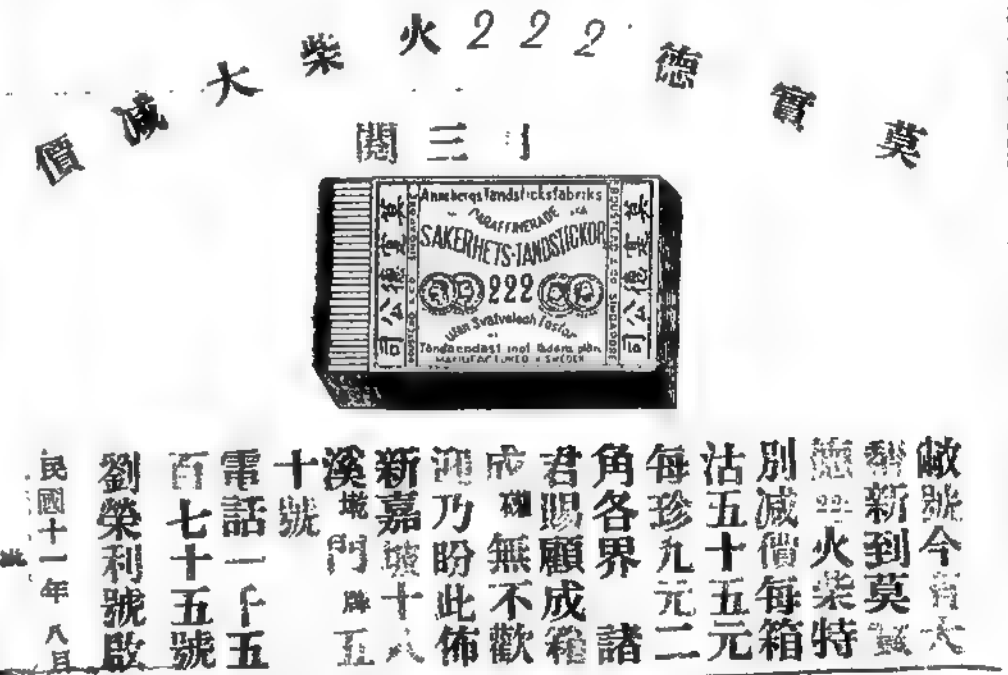 莫實德222火柴大減價
三閱
莫實德公司
BOUSTEAD & CO SINGAPORE
Annebergs Tandsticksfabriks
PARAFFINERADE
SAKERHETS-TANDSTICKOR
222
utan Svafvel och Fosfor
Tända endast mot lådans plån
MANUFACTURED IN SWEDEN
BOUSTEAD & CO SINGAPORE
莫實德公司
敝號今有大
幫新到莫實
德222火柴特
別減價每箱
沽五十五元
每珍九元二
角各界 諸
君賜顧成箱
成 無不歡
迎乃盼此佈
新嘉坡十八
溪墘門牌五
十號
電話一千五
百七十五號
劉榮利號啟
民國十一年八月